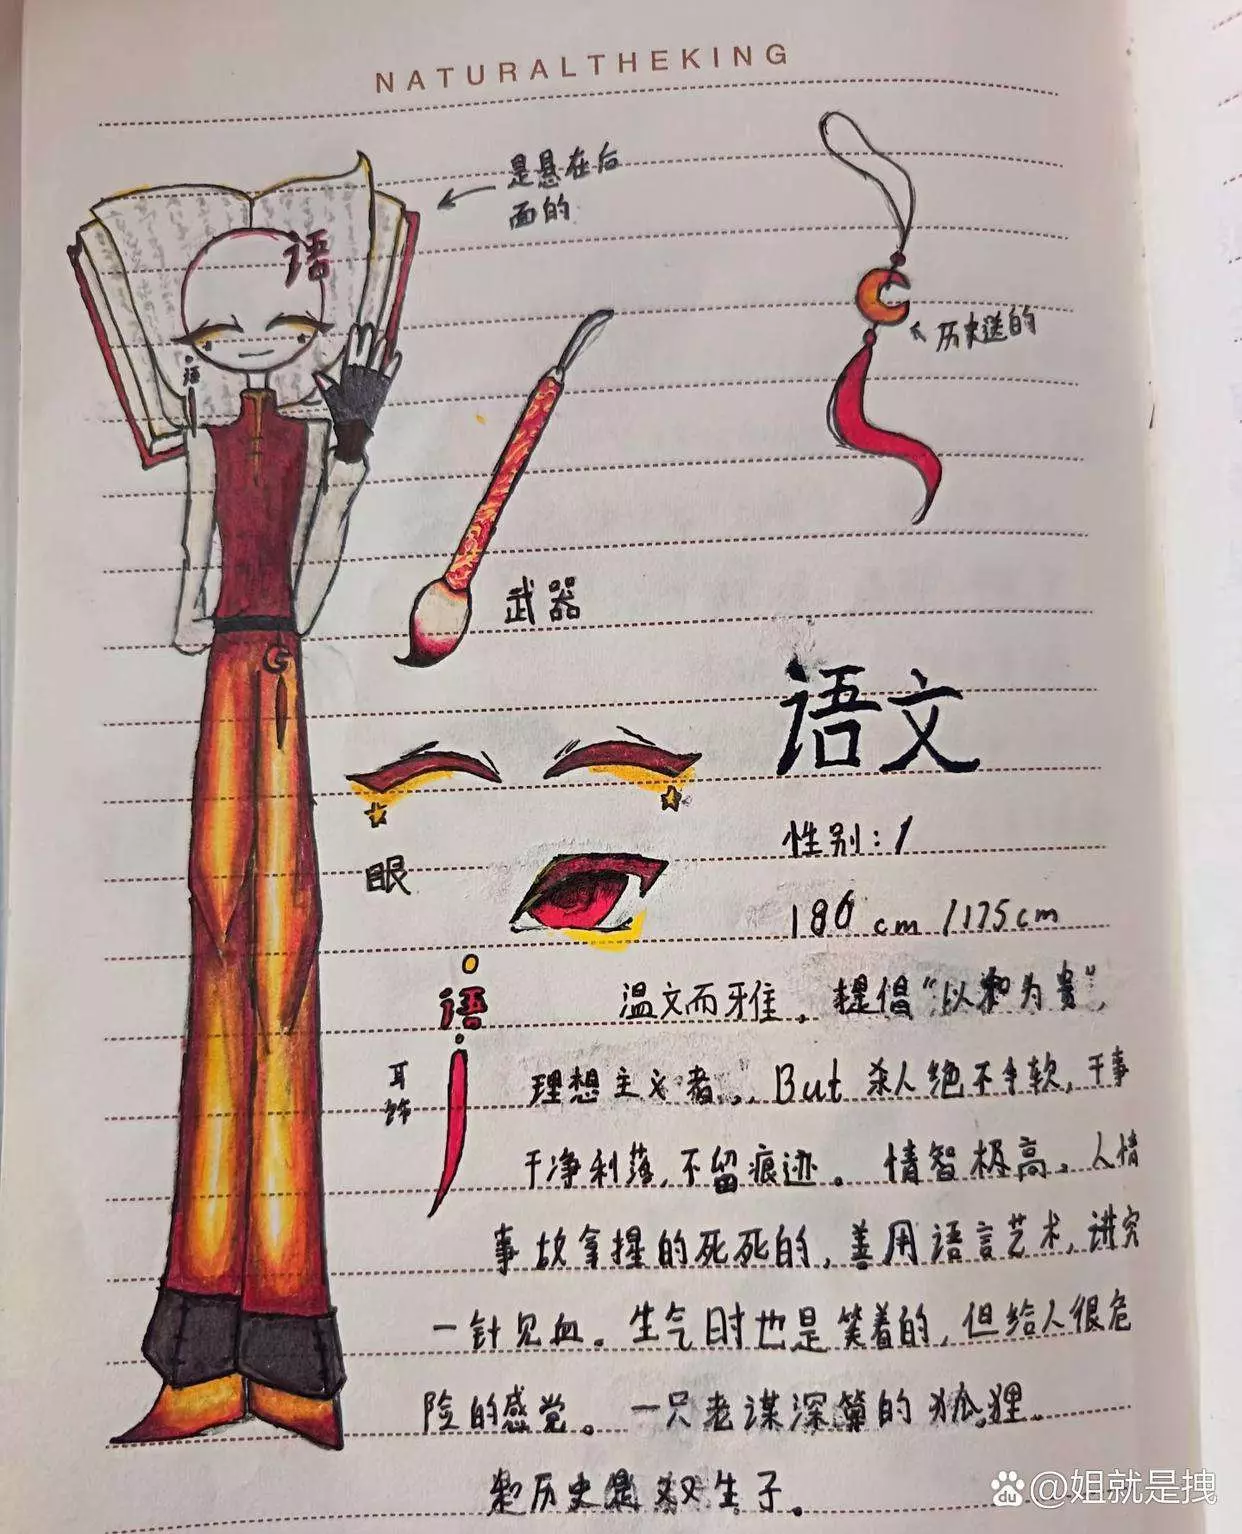 NATURALTHEKING
是悬在后
面的
语
历史送的
语
武器
语文
眼
性别：1
180cm/175cm
语
耳饰
温文而雅，提倡“以和为贵”，
理想主义者。But 杀人绝不手软，干事
干净利落，不留痕迹。情智极高，人情
事故拿捏的死死的，善用语言艺术，讲究
一针见血。生气时也是笑着的，但给人很危
险的感觉。一只老谋深算的狐狸。
和历史是双生子。
@姐就是拽